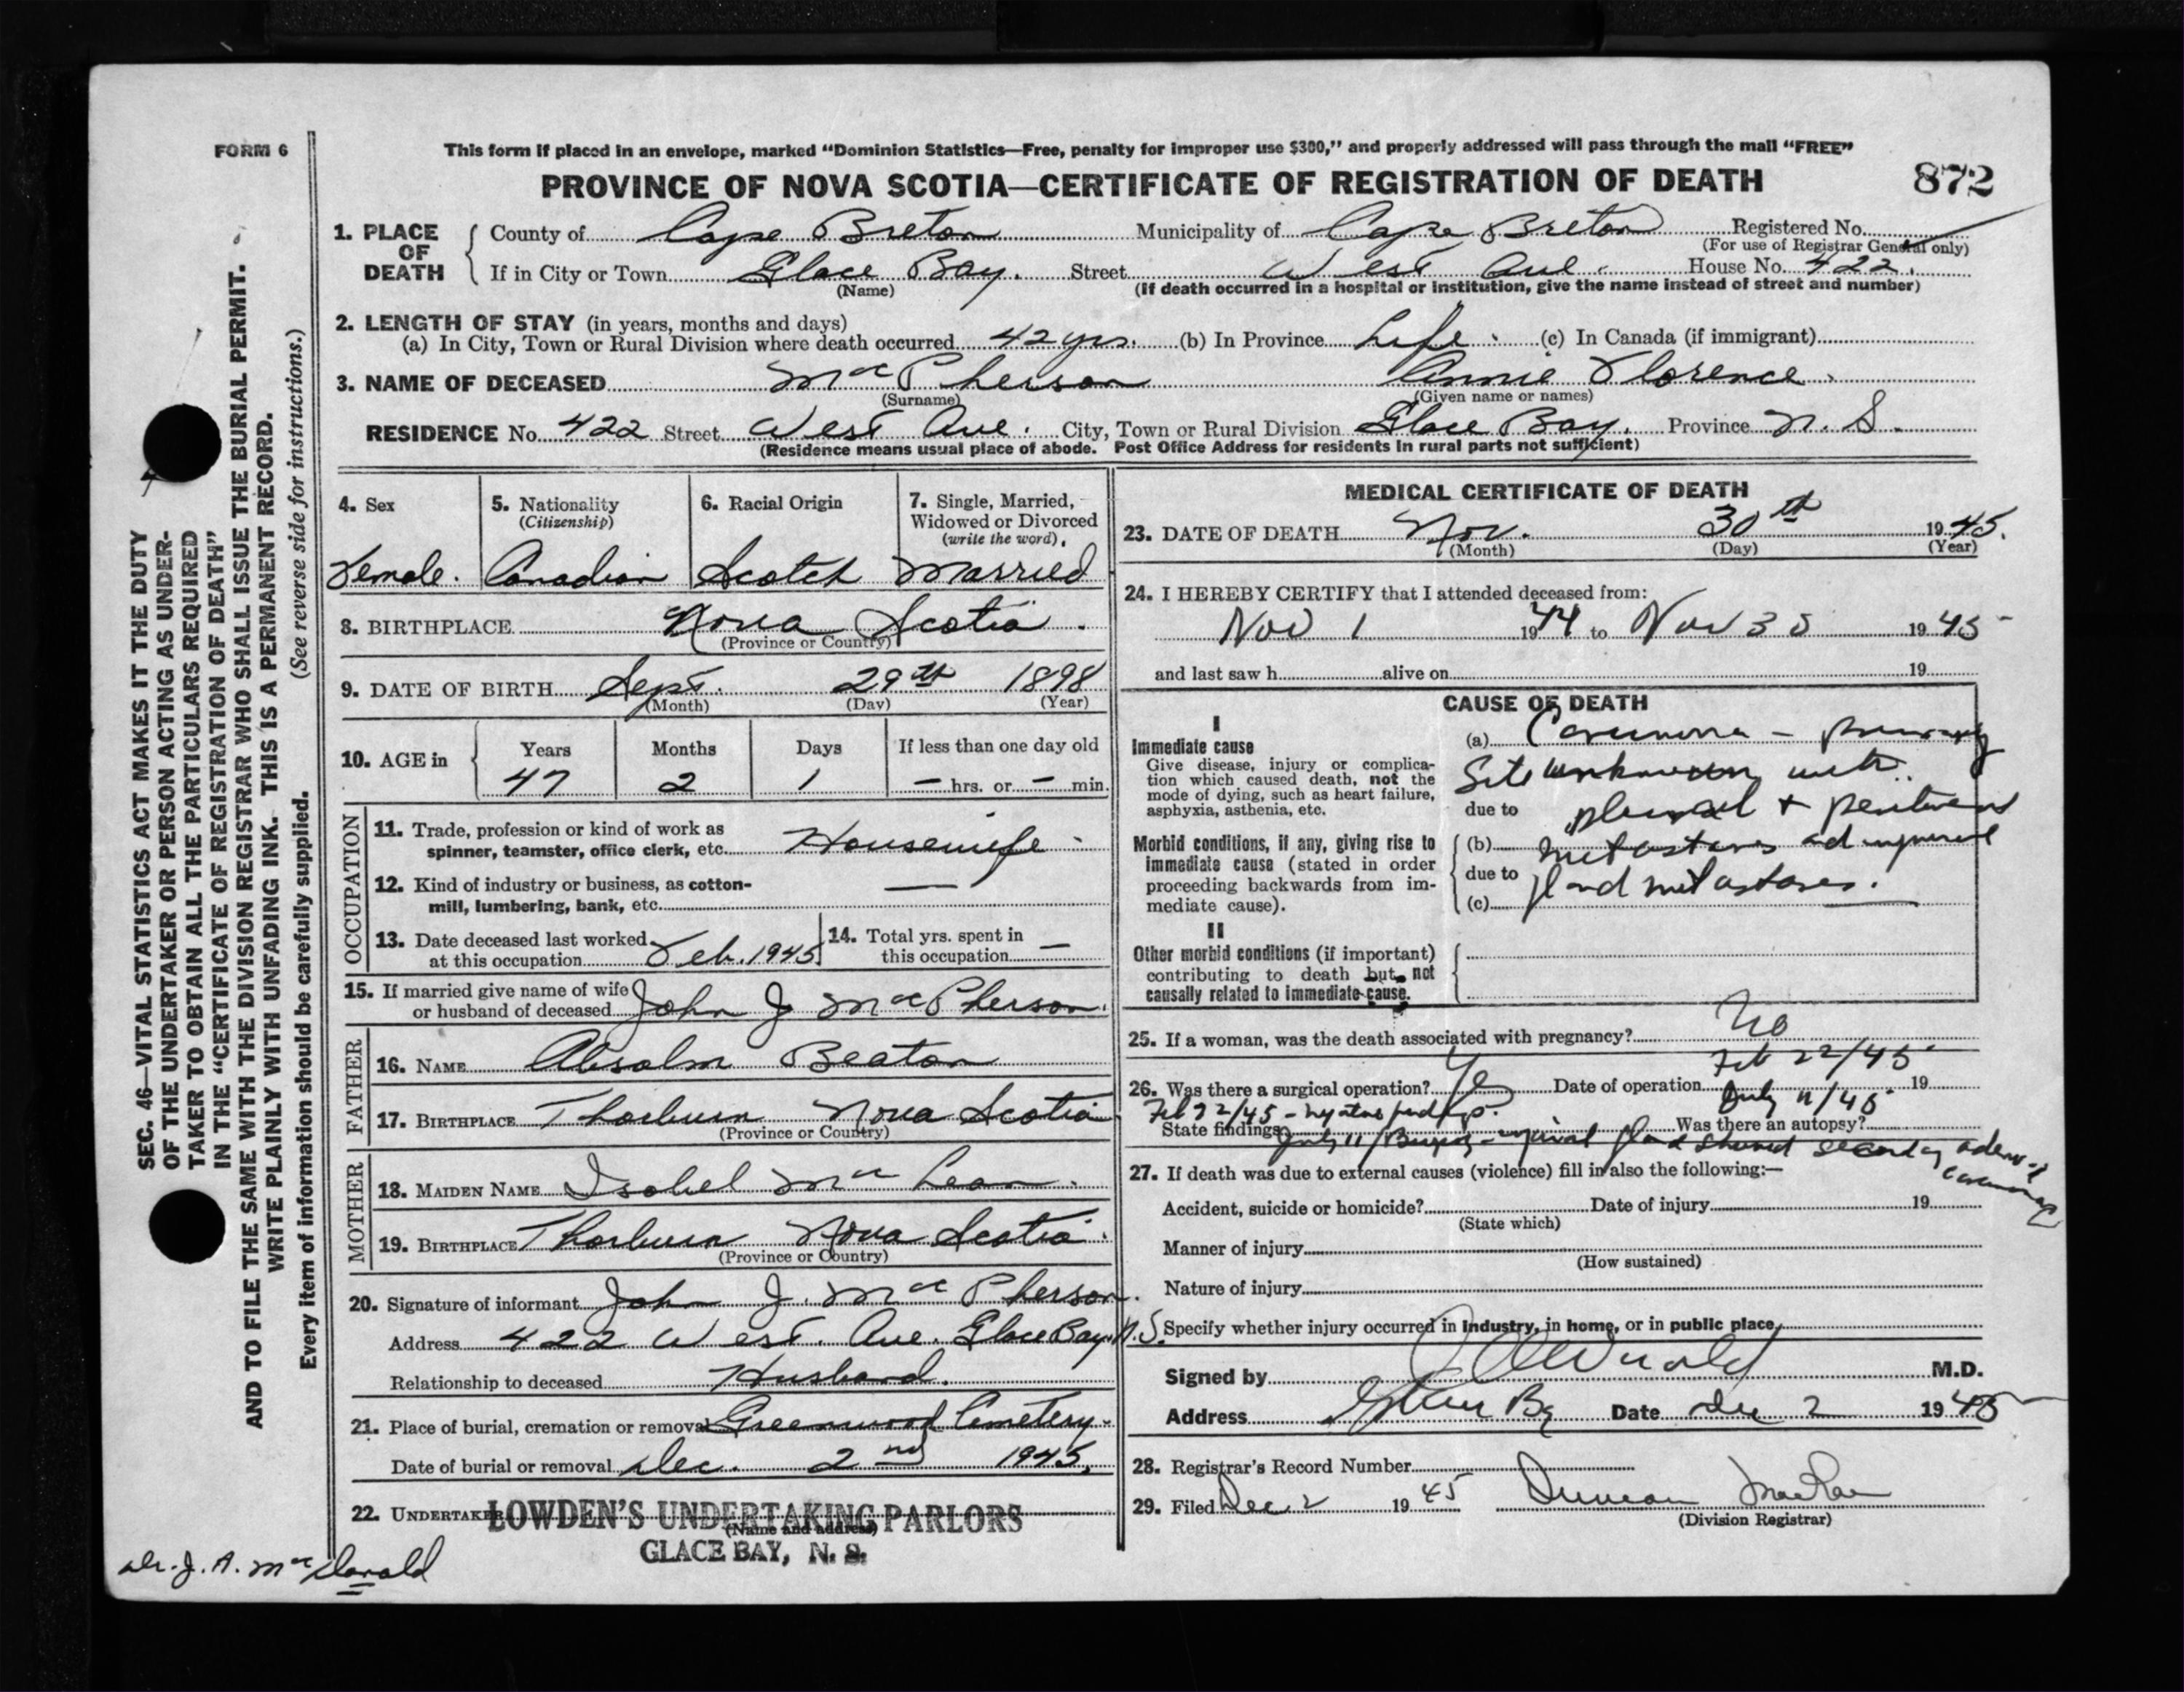 FORM 6
This form if placed in an envelope, marked "Dominion Statistics—Free, penalty for improper use $300," and properly addressed will pass through the mail "FREE"
PROVINCE OF NOVA SCOTIA—CERTIFICATE OF REGISTRATION OF DEATH
872
1. PLACE OF DEATH
County of Cape Breton Municipality of Cape Breton Registered No.
(For use of Registrar General only)
If in City or Town Glace Bay. Street West Ave. House No. 422.
(Name) (If death occurred in a hospital or institution, give the name instead of street and number)
2. LENGTH OF STAY (in years, months and days)
(a) In City, Town or Rural Division where death occurred 42 yrs. (b) In Province Life. (c) In Canada (if immigrant)
3. NAME OF DECEASED MacPherson Annie Florence
(Surname) (Given name or names)
RESIDENCE No. 422 Street West Ave. City, Town or Rural Division Glace Bay. Province N. S.
(Residence means usual place of abode. Post Office Address for residents in rural parts not sufficient)
4. Sex
Female.
5. Nationality
(Citizenship)
Canadian
6. Racial Origin
Scotch
7. Single, Married,
Widowed or Divorced
(write the word)
Married
8. BIRTHPLACE Nova Scotia.
(Province or Country)
9. DATE OF BIRTH Sept. 29th 1898
(Month) (Day) (Year)
10. AGE in
Years Months Days If less than one day old
47 2 1 — hrs. or — min.
OCCUPATION
11. Trade, profession or kind of work as
spinner, teamster, office clerk, etc. Housewife
12. Kind of industry or business, as cotton-
mill, lumbering, bank, etc. —
13. Date deceased last worked
at this occupation Feb. 1945
14. Total yrs. spent in
this occupation —
15. If married give name of wife
or husband of deceased John J MacPherson.
FATHER
16. NAME Absolm Beaton
17. BIRTHPLACE Thorburn Nova Scotia
(Province or Country)
MOTHER
18. MAIDEN NAME Isobel MacLean.
19. BIRTHPLACE Thorburn Nova Scotia.
(Province or Country)
20. Signature of informant John J. MacPherson.
Address 422 West. Ave. Glace Bay, N.S.
Relationship to deceased Husband.
21. Place of burial, cremation or removal Greenwood Cemetery
Date of burial or removal Dec. 2nd 1945.
22. UNDERTAKER LOWDEN'S UNDERTAKING PARLORS
(Name and address)
GLACE BAY, N. S.
Dr. J. A. MacDonald
MEDICAL CERTIFICATE OF DEATH
23. DATE OF DEATH Nov. 30th 1945.
(Month) (Day) (Year)
24. I HEREBY CERTIFY that I attended deceased from:
Nov 1 1944 to Nov 30 1945
and last saw h alive on 19
CAUSE OF DEATH
I
Immediate cause
Give disease, injury or complica-
tion which caused death, not the
mode of dying, such as heart failure,
asphyxia, asthenia, etc.
Morbid conditions, if any, giving rise to
immediate cause (stated in order
proceeding backwards from im-
mediate cause).
(a) Carcinoma — primary
site unknown with
due to pleural + peritoneal
(b) metastases and inguinal
due to gland metastases.
(c)
II
Other morbid conditions (if important)
contributing to death but not
causally related to immediate cause.
25. If a woman, was the death associated with pregnancy? No
26. Was there a surgical operation? Yes Date of operation Feb 22/45 July 11/45 19
Feb 22/45 - negative findings.
State findings July 11/Biopsy - inguinal gland showed secondary adeno-carcinoma Was there an autopsy?
27. If death was due to external causes (violence) fill in also the following:—
Accident, suicide or homicide? Date of injury 19
(State which)
Manner of injury
(How sustained)
Nature of injury
Specify whether injury occurred in industry, in home, or in public place
Signed by M.D.
Address Glace Bay Date Dec 2 1945
28. Registrar's Record Number
29. Filed Dec 2 1945 Duncan MacRae
(Division Registrar)
SEC. 46—VITAL STATISTICS ACT MAKES IT THE DUTY
OF THE UNDERTAKER OR PERSON ACTING AS UNDER-
TAKER TO OBTAIN ALL THE PARTICULARS REQUIRED
IN THE "CERTIFICATE OF REGISTRATION OF DEATH"
AND TO FILE THE SAME WITH THE DIVISION REGISTRAR WHO SHALL ISSUE THE BURIAL PERMIT.
WRITE PLAINLY WITH UNFADING INK. THIS IS A PERMANENT RECORD.
Every item of information should be carefully supplied. (See reverse side for instructions.)